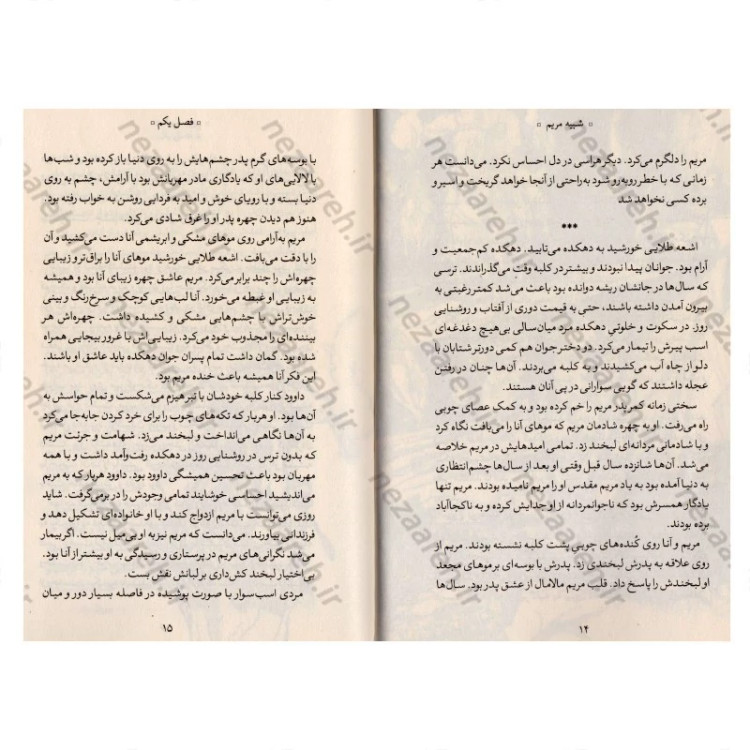 شبیه مریم
مریم را دلگرم می‌کرد. دیگر هراسی در دل احساس نکرد. می‌دانست هر
زمانی که با خطر روبه‌رو شود به‌راحتی از آنجا خواهد گریخت و اسیر و
برده کسی نخواهد شد
***
اشعه طلایی خورشید به دهکده می‌تابید. دهکده کم‌جمعیت و
آرام بود. جوانان پیدا نبودند و بیشتر در کلبه وقت می‌گذراندند. ترسی
که سال‌ها در جانشان ریشه دوانده بود باعث می‌شد کمتر رغبتی به
بیرون آمدن داشته باشند، حتی به قیمت دوری از آفتاب و روشنایی
روز. در سکوت و خلوتیِ دهکده مرد میان‌سالی بی‌هیچ دغدغه‌ای
اسب پیرش را تیمار می‌کرد. دو دختر جوان هم کمی دورتر شتابان با
دلو از چاه آب می‌کشیدند و به کلبه می‌بردند. آن‌ها چنان در رفتن
عجله داشتند که گویی سوارانی در پی آنان هستند.
سختی زمانه کمر پدر مریم را خم کرده بود و به کمک عصای چوبی
راه می‌رفت. او به چهره شادمان مریم که موهای آنا را می‌بافت نگاه کرد
و با شادمانی مردانه‌ای لبخند زد. تمامی امیدهایش در مریم خلاصه
می‌شد. آن‌ها شانزده سال قبل وقتی او بعد از سال‌ها چشم انتظاری
به دنیا آمده بود به یاد مریم مقدس او را مریم نامیده بودند. مریم تنها
یادگار همسرش بود که ناجوانمردانه از او جدایش کرده و به ناکجاآباد
برده بودند.
مریم و آنا روی کُنده‌های چوبی پشت کلبه نشسته بودند. مریم از
روی علاقه به پدرش لبخندی زد. پدرش با بوسه‌ای بر موهای مجعد
او لبخندش را پاسخ داد. قلب مریم مالامال از عشق پدر بود. سال‌ها
۱۴
فصل یکم
با بوسه‌های گرم پدر چشم‌هایش را به روی دنیا باز کرده بود و شب‌ها
با لالایی‌های او که یادگاری مادر مهربانش بود با آرامش، چشم به روی
دنیا بسته و با رویای خوش و امید به فردایی روشن به خواب رفته بود.
هنوز هم دیدن چهره پدر او را غرق شادی می‌کرد.
مریم به‌آرامی روی موهای مشکی و ابریشمی آنا دست می‌کشید و آن
را با دقت می‌بافت. اشعه طلایی خورشید موهای آنا را براق‌تر و زیبایی
چهره‌اش را چند برابر می‌کرد. مریم عاشق چهره زیبای آنا بود و همیشه
به زیبایی او غبطه می‌خورد. آنا لب‌هایی کوچک و سرخ‌رنگ و بینی
خوش‌تراش با چشم‌هایی مشکی و کشیده داشت. چهره‌اش هر
بیننده‌ای را مجذوب خود می‌کرد. زیبایی اش با غرور بی‌جایی همراه
شده بود. گمان داشت تمام پسران جوان دهکده باید عاشق او باشند.
این فکر آنا همیشه باعث خنده مریم بود.
داوود کنار کلبه خودشان با تبر هیزم می‌شکست و تمام حواسش به
آن‌ها بود. او هر بار که تکه‌های چوب را برای خرد کردن جابه‌جا می‌کرد
به آن‌ها نگاهی می‌انداخت و لبخند می‌زد. شهامت و جرئت مریم
که بدون ترس در روشنایی روز در دهکده رفت‌وآمد داشت و با همه
مهربان بود باعث تحسین همیشگی داوود بود. داوود هر بار که به مریم
می‌اندیشید احساسی خوشایند تمامی وجودش را در برمی‌گرفت. شاید
روزی می‌توانست با مریم ازدواج کند و با او خانواده‌ای تشکیل دهد و
فرزندانی بیاورند. می‌دانست که مریم نیز به او بی‌میل نیست. اگر بیمار
می‌شد نگرانی‌های مریم در پرستاری و رسیدگی به او بیشتر از آنا بود.
بی‌اختیار لبخند کش‌داری بر لبانش نقش بست.
مردی اسب‌سوار با صورت پوشیده در فاصله بسیار دور و میان
۱۵
nezaareh.ir